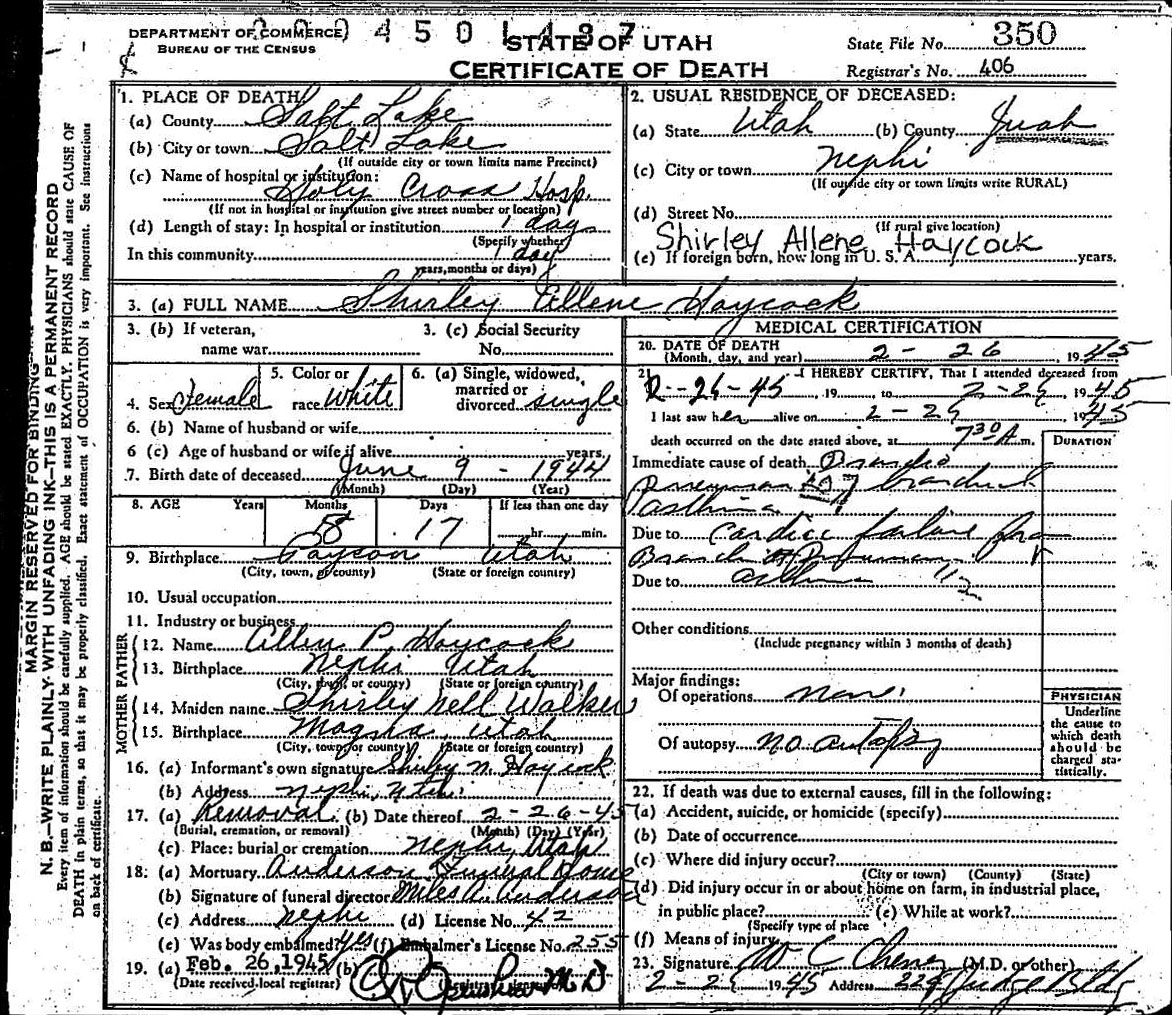 DEPARTMENT OF COMMERCE
BUREAU OF THE CENSUS
STATE OF UTAH
CERTIFICATE OF DEATH
State File No. 350
Registrar's No. 406
MARGIN RESERVED FOR BINDING
N. B.—WRITE PLAINLY WITH UNFADING INK—THIS IS A PERMANENT RECORD
Every item of information should be carefully supplied. AGE should be stated EXACTLY. PHYSICIANS should state CAUSE OF
DEATH in plain terms, so that it may be properly classified. Exact statement of OCCUPATION is very important. See instructions
on back of certificate.
1. PLACE OF DEATH
(a) County Salt Lake
(b) City or town Salt Lake
(If outside city or town limits name Precinct)
(c) Name of hospital or institution:
Holy Cross Hosp.
(If not in hospital or institution give street number or location)
(d) Length of stay: In hospital or institution 1 day
(Specify whether
In this community 1 day
years, months or days)
2. USUAL RESIDENCE OF DECEASED:
(a) State Utah (b) County Juab
(c) City or town Nephi
(If outside city or town limits write RURAL)
(d) Street No.
(If rural give location)
Shirley Allene Haycock
(e) If foreign born, how long in U. S. A. years.
3. (a) FULL NAME Shirley Ellene Haycock
3. (b) If veteran,
name war
3. (c) Social Security
No.
4. Sex Female
5. Color or
race White
6. (a) Single, widowed,
married or
divorced single
6. (b) Name of husband or wife
6 (c) Age of husband or wife if alive years
7. Birth date of deceased June 9 - 1944
(Month) (Day) (Year)
8. AGE Years Months Days If less than one day
8 17 hr. min.
9. Birthplace Payson Utah
(City, town, or county) (State or foreign country)
10. Usual occupation
11. Industry or business
FATHER
12. Name Allen P. Haycock
13. Birthplace Nephi Utah
(City, town, or county) (State or foreign country)
MOTHER
14. Maiden name Shirley Nell Walker
15. Birthplace Magna, Utah
(City, town or county) (State or foreign country)
16. (a) Informant's own signature Shirley N. Haycock
(b) Address Nephi, Utah
17. (a) Removal (b) Date thereof 2-26-45
(Burial, cremation, or removal) (Month) (Day) (Year)
(c) Place: burial or cremation Nephi, Utah
18: (a) Mortuary Anderson Funeral Home
(b) Signature of funeral director Miles A. Anderson
(c) Address Nephi (d) License No. 42
(e) Was body embalmed? Yes (f) Embalmer's License No. 255
19. (a) Feb. 26, 1945 (b) M D
(Date received local registrar)
MEDICAL CERTIFICATION
20. DATE OF DEATH
(Month, day, and year) 2 - 26, 1945
21. I HEREBY CERTIFY, That I attended deceased from
2-26-45, 19 , to 2-26, 1945
I last saw her alive on 2-26 1945
death occurred on the date stated above, at 7 30 A m.
DURATION
Immediate cause of death
asthma
Due to Cardiac failure
Due to asthma
Other conditions
(Include pregnancy within 3 months of death)
Major findings:
Of operations None
Of autopsy No autopsy
PHYSICIAN
Underline
the cause to
which death
should be
charged sta-
tistically.
22. If death was due to external causes, fill in the following:
(a) Accident, suicide, or homicide (specify)
(b) Date of occurrence
(c) Where did injury occur?
(City or town) (County) (State)
(d) Did injury occur in or about home on farm, in industrial place,
in public place? (e) While at work?
(Specify type of place
(f) Means of injury
23. Signature W C Cheney (M.D. or other)
1945 Address Judge Bldg